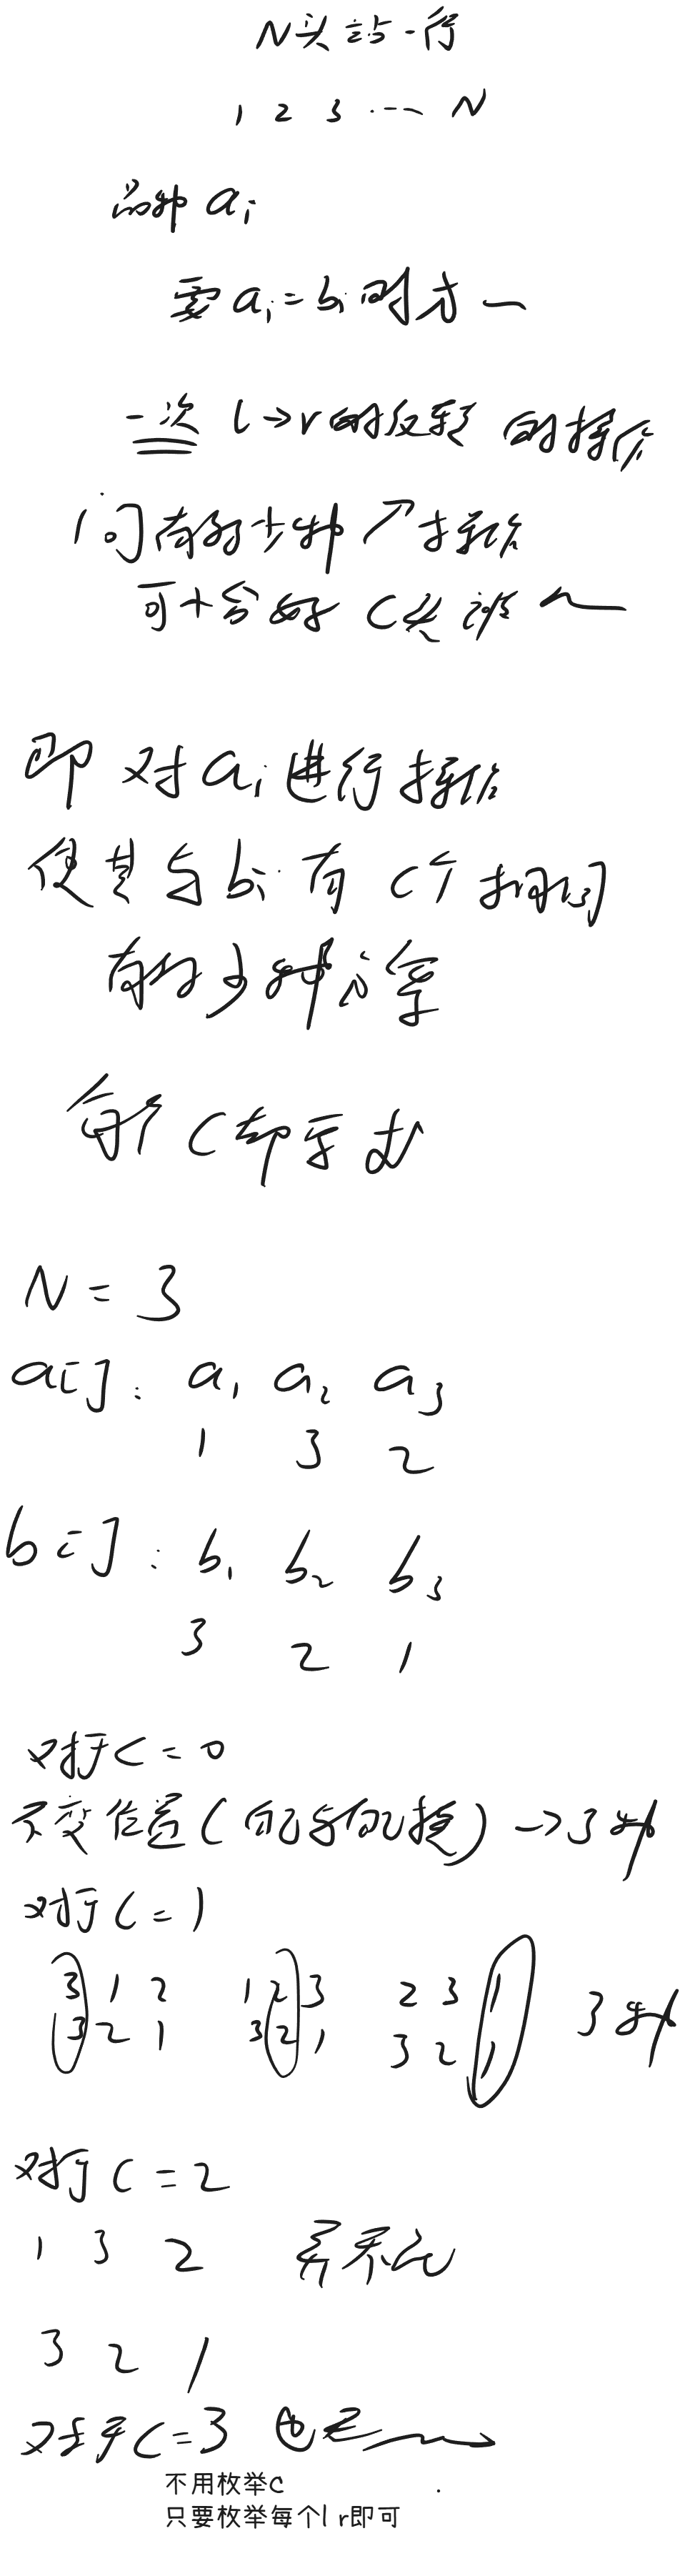 N头站一行
1 2 3 ... N
品种 aᵢ
要 aᵢ = bᵢ 时才
一次 l→r 的反转 的操作
问有多少种 操作
可 恰好 C头被
即 对 aᵢ 进行操作
使其与 bᵢ 有 C个相同
有多少种方案
每个 C 都要求
N = 3
a[]: a₁ a₂ a₃
1 3 2
b[]: b₁ b₂ b₃
3 2 1
对于 C = 0
不变位置(自己与自己换) → 3种
对于 C = 1
3 1 2 1 2 3 2 3 1 3种
3 2 1 3 2 1 3 2 1
对于 C = 2
1 3 2
3 2 1
对于 C = 3 也是
不用枚举C
只要枚举每个l r即可